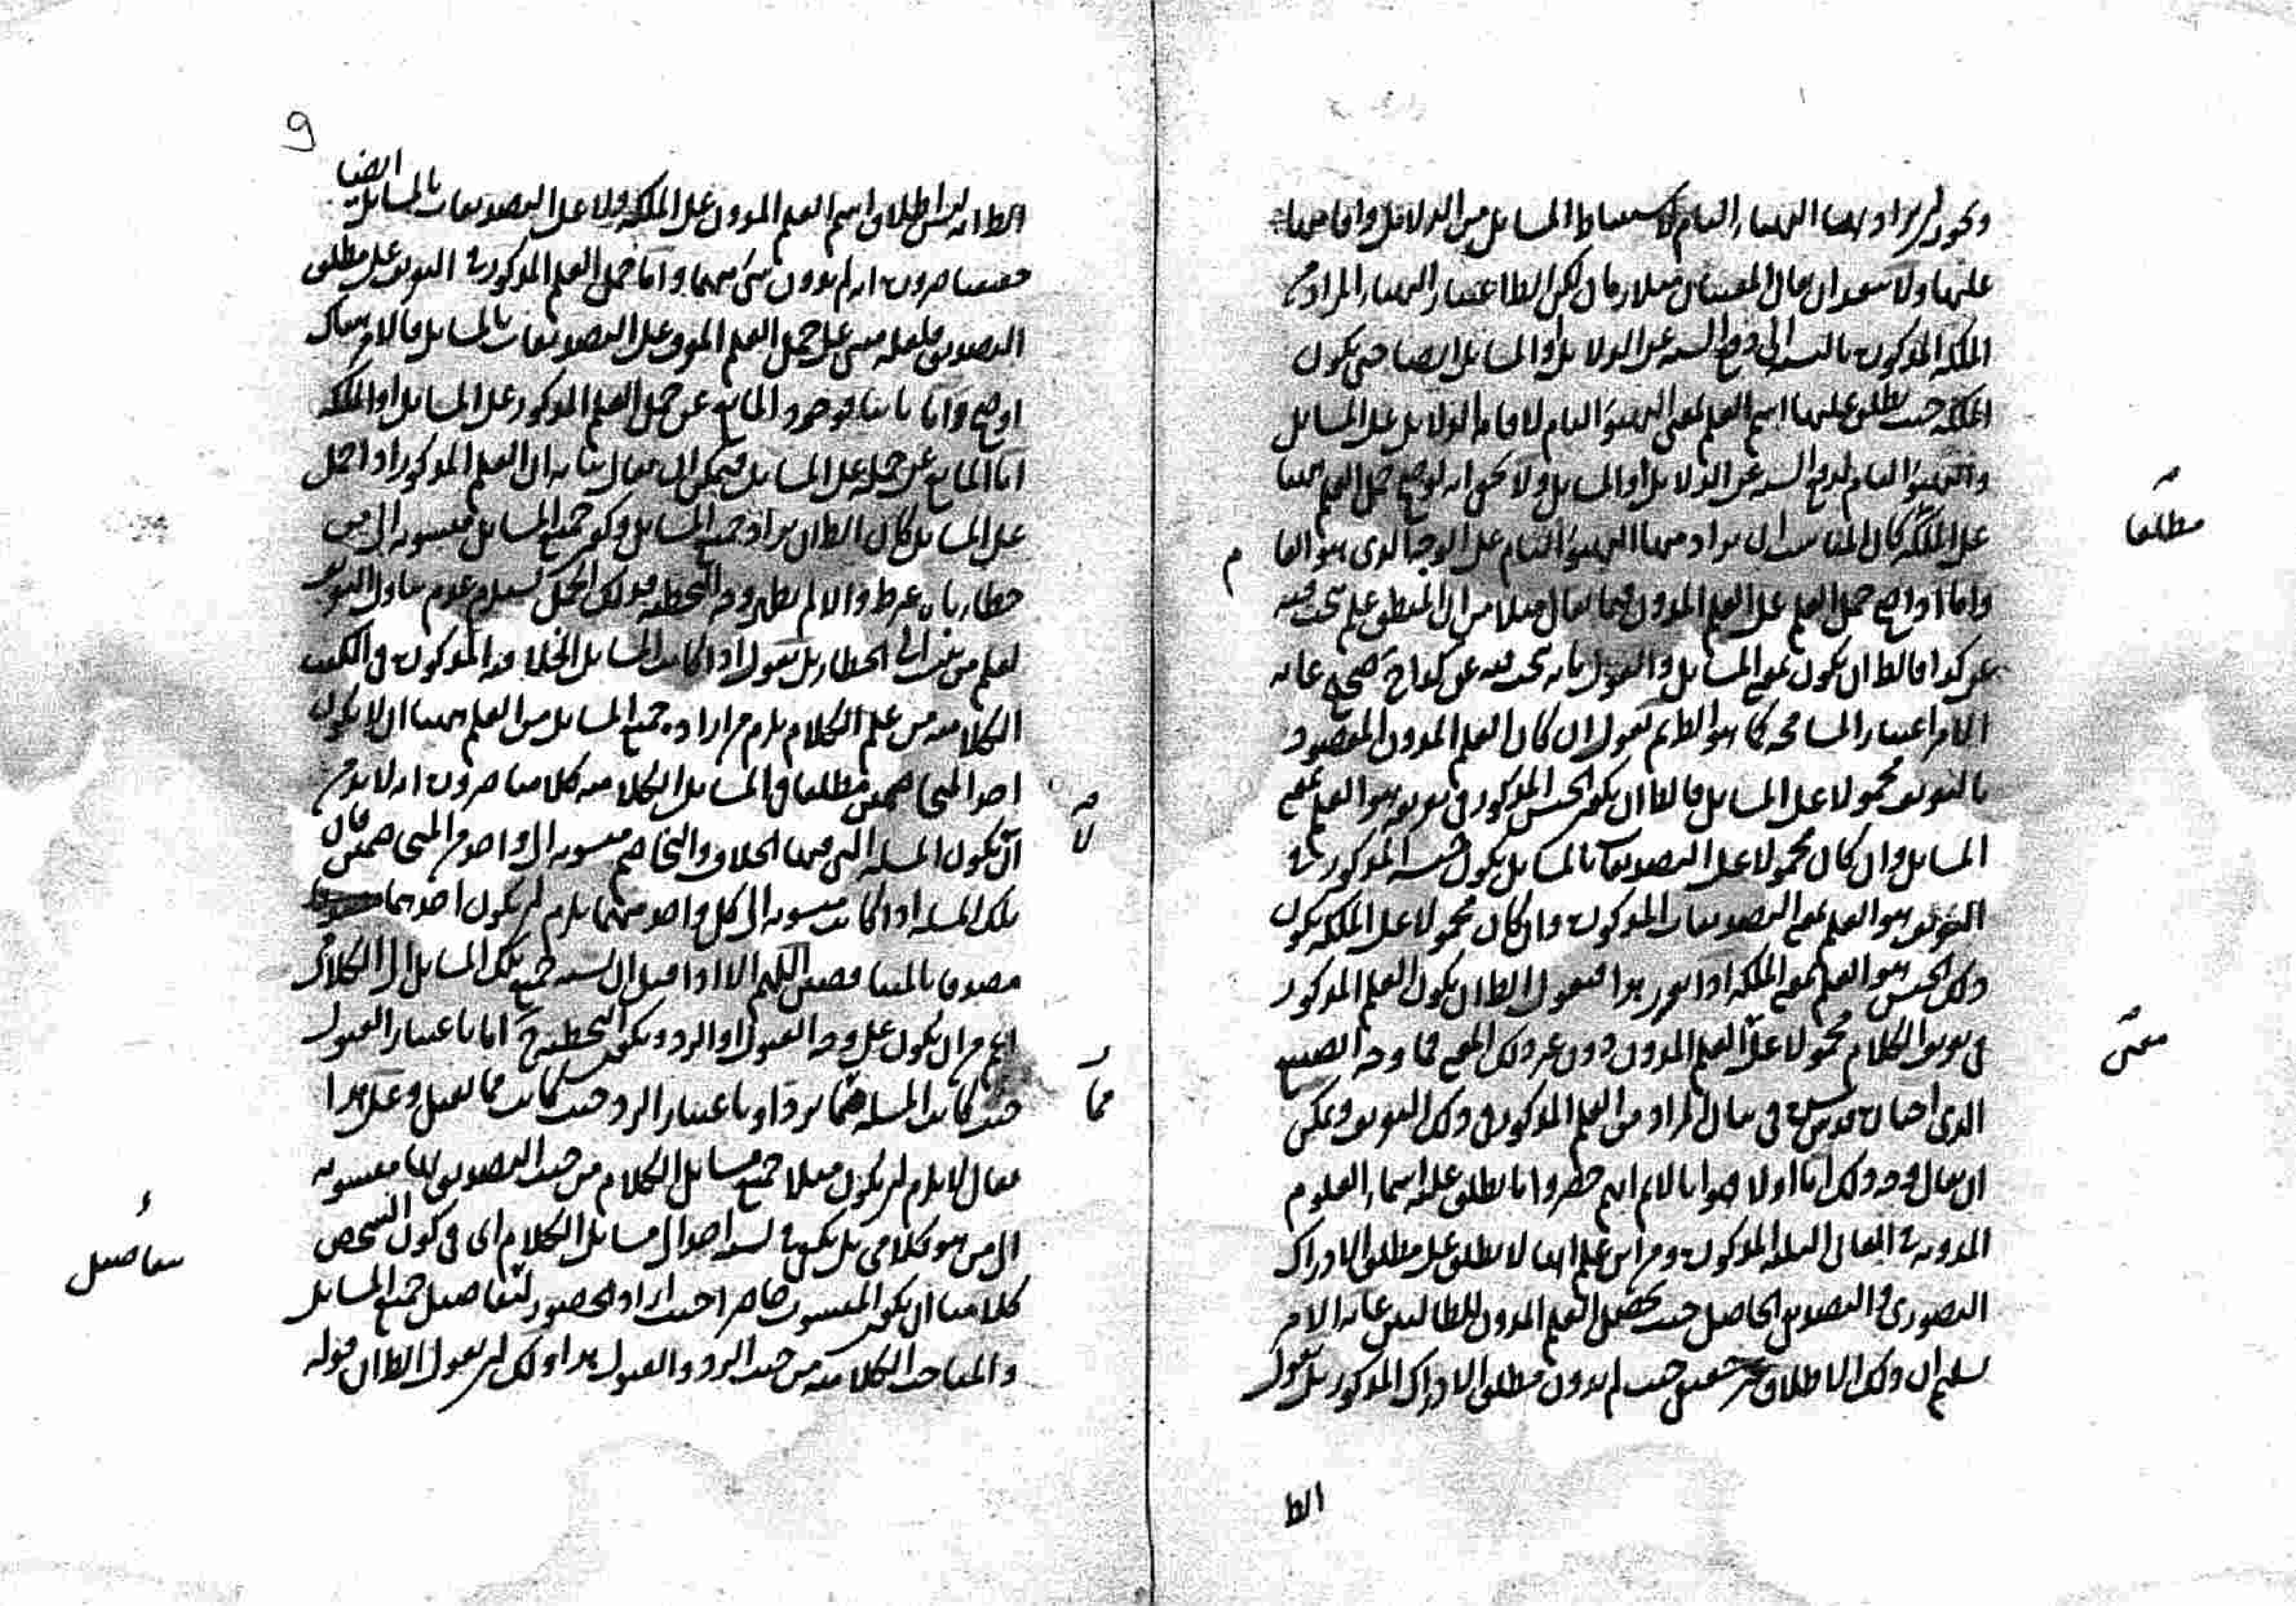 ويجوز ان يراد بهذا التهيأ التام لاستنباط المسائل من الدلائل واقامتها
عليها ولا يبعد ان يقال المعنيان متلازمان لكن الظ اعتبار التهيأ المراد من
الملكة المذكورة بالنسبة الى دفع الشبه عن الدلائل او المسائل ايضا حتى يكون
الملكة حيث يطلق عليها اسم العلم بمعنى التهيؤ التام لاقامة الدلائل على المسائل
والتهيؤ التام لدفع الشبه عن الدلائل او المسائل ولا يخفى انه لو صح حمل العلم ههنا
مطلقا
على الملكة كان المناسب ان يراد منها التهيؤ التام على الوجه الذي هو العا م
واما اذا صح حمل العلم على العلم المدون فيما يقال مثلا من ان المنطق علم يبحث فيه
عن كذا فالظ ان يكون بمعنى المسائل والقول بانه يبحث فيه عن كذا ح صحيح غاية
الامر اعتبار المسامحة كما هو الظ ثم نقول ان كان العلم المدون المقصود
بالتعريف محمولا على المسائل فالظ ان يكون الجنس المذكور في تعريفه هو العلم بمعنى
المسائل وان كان محمولا على التصديقات بالمسائل يكون جنسه المذكور في
التعريف هو العلم بمعنى التصديقات المذكورة وان كان محمولا على الملكة يكون
ذلك الجنس هو العلم بمعنى الملكة اذا تقرر هذا فنقول الظ ان يكون العلم المذكور
معنى
في تعريف الكلام محمولا على العلم المدون دون غير ذلك المعنى فما وجه الصنيع
الذي اختاره قدس سره في بيان المراد من العلم المذكور في ذلك التعريف ويمكن
ان يقال وجه ذلك اما اولا فهو انا لا نم انهم حصروا ما يطلق عليه اسماء العلوم
المدونة في المعاني الثلثة المذكورة ومن اين علم انها لا تطلق على مطلق الادراك
التصوري والتصديقي الحاصل حيث يحصل العلم المدون للطالبين غاية الامر
تسليم ان ذلك الاطلاق غير حقيقي حيث لم يدون مطلق الادراك المذكور بل نقول
الظ
9
الظ انه ليس اطلاق اسم العلم المدون على الملكة ولا على التصديقات بالمسائل ايضا
حقيقيا ضرورة انه لم يدون شيء منهما واما حمل العلم المذكور في التعريف على مطلق
التصديق فلعله مبنى على حمل العلم المعرف على التصديقات بالمسائل فالامر هناك
اوضح واما ثانيا فوجود المانع عن حمل العلم المذكور على المسائل او الملكة
اما المانع عن حمله على المسائل فيمكن ان يقال بيانه ان العلم المذكور اذا حمل
على المسائل كان الظ ان يراد جميع المسائل وكون جميع المسائل منسوبة الى من
خطأ بان غير ط والا لم يظهر وجه التخطئة فذلك الحمل يستلزم عدم تناول التعريف
لعلم من ينسب الى الخطأ بل نقول اذا كانت المسائل الخلافية المذكورة في الكتب
الكلامية من علم الكلام يلزم من ارادة جميع المسائل من العلم ههنا ان لا يكون
احد المتخاصمين مطلقا في المسائل الكلامية كلاميا ضرورة انه لا يلزم
لا
ان يكون المسئلة التي فيها الخلاف والتخاصم منسوبة الى واحد من المتخاصمين فان
تلك المسئلة اذا كانت منسوبة الى كل واحد منهما يلزم ان يكون احدهما
مصدقا بالمتناقضين اللهم الا اذا قيل ان نسبة جميع تلك المسائل الى الكلامي
اعم من ان يكون على وجه القبول او الرد ويكون التخطئة ح اما باعتبار القبول
حيث كانت المسئلة مما يرد او باعتبار الرد حيث كانت مما يقبل وعلى هذا
مما
يقال لا يلزم ان يكون مثلا جميع مسائل الكلام من حيث التصديق بها منسوبة
الى من هو كلامي بل يكفي في نسبة احوال مسائل الكلام اي في كون الشخص
كلاميا ان يكون المنسوب حاضرا حيث اراد الحضور لتفاصيل جميع المسائل
تفاصيل
والمباحث الكلامية من حيث الرد والقبول هذا ولك ان تقول الظ ان قوله